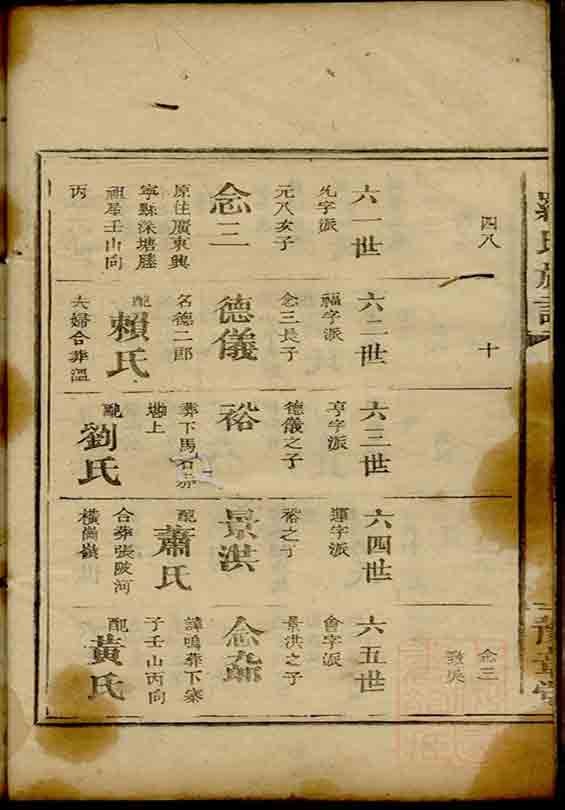 羅氏族譜
豫章堂
四八
十
念三
六一世
先字派
元八公子
念三
原住廣東興
寧縣深塘壢
祖屋壬山丙向
六二世
福字派
念三長子
德儀
名德二郎
配
賴氏
夫婦合葬溫
六三世
亨字派
德儀之子
裕
葬下馬石赤
墈上
配
劉氏
六四世
運字派
裕之子
景洪
配
蕭氏
合葬張陂河
橫崗嶺
六五世
會字派
景洪之子
諱鳴葬下寨
子壬山丙向
配
黃氏